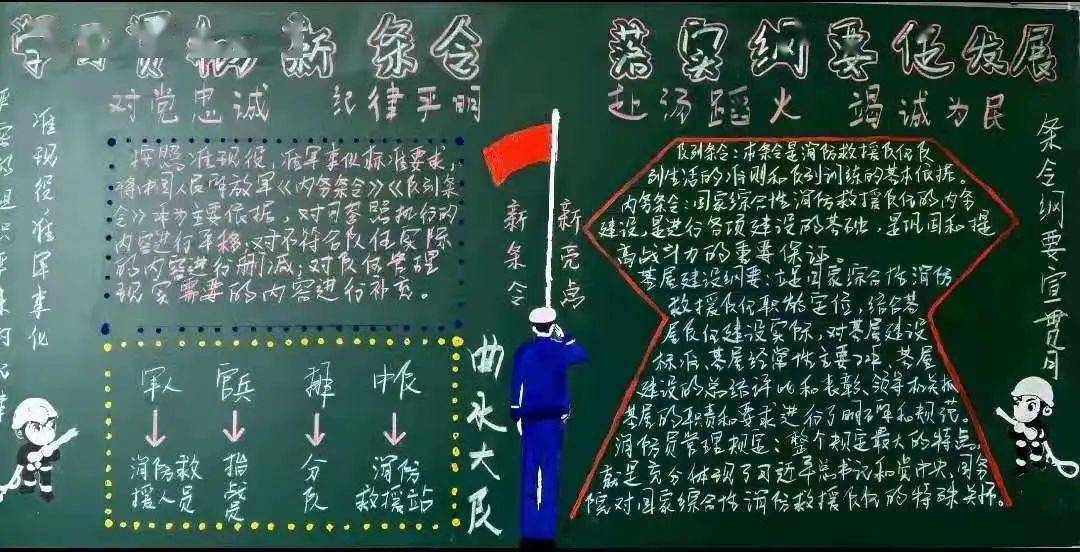 学习贯彻新条令
落实纲要促发展
对党忠诚 纪律严明
赴汤蹈火 竭诚为民
准现役,准军事化
按照准现役,准军事化标准要求,
将中国人民解放军《内务条令》《队列条
令》草为主要依据,对可参照执行的
内容进行平移;对不符合队伍实际
的内容进行删减;对队伍管理
现实需要的内容进行补充。
军人
官兵
排
中队
消防救
援人员
指战员
分队
消防
救援站
新条令
新亮点
曲水大队
队列条令:本条令是消防救援队伍队
列生活的准则和队列训练的基本依据。
内务条令:国家综合性消防救援队伍的内务
建设,是进行各项建设的基础,是巩固和提
高战斗力的重要保证。
基层建设纲要:立足国家综合性消防
救援队伍职能定位,结合基
层队伍建设实际,对基层建设
标准、基层经常性主要工作、基层
建设的总结评比和表彰、领导和机关
基层的职责和要求进行了明确和规范。
消防员管理规定:整个规定最大的特点,
就是充分体现了习近平总书记和党中央、国务
院对国家综合性消防救援队伍的特殊关怀。
条令纲要宣贯月